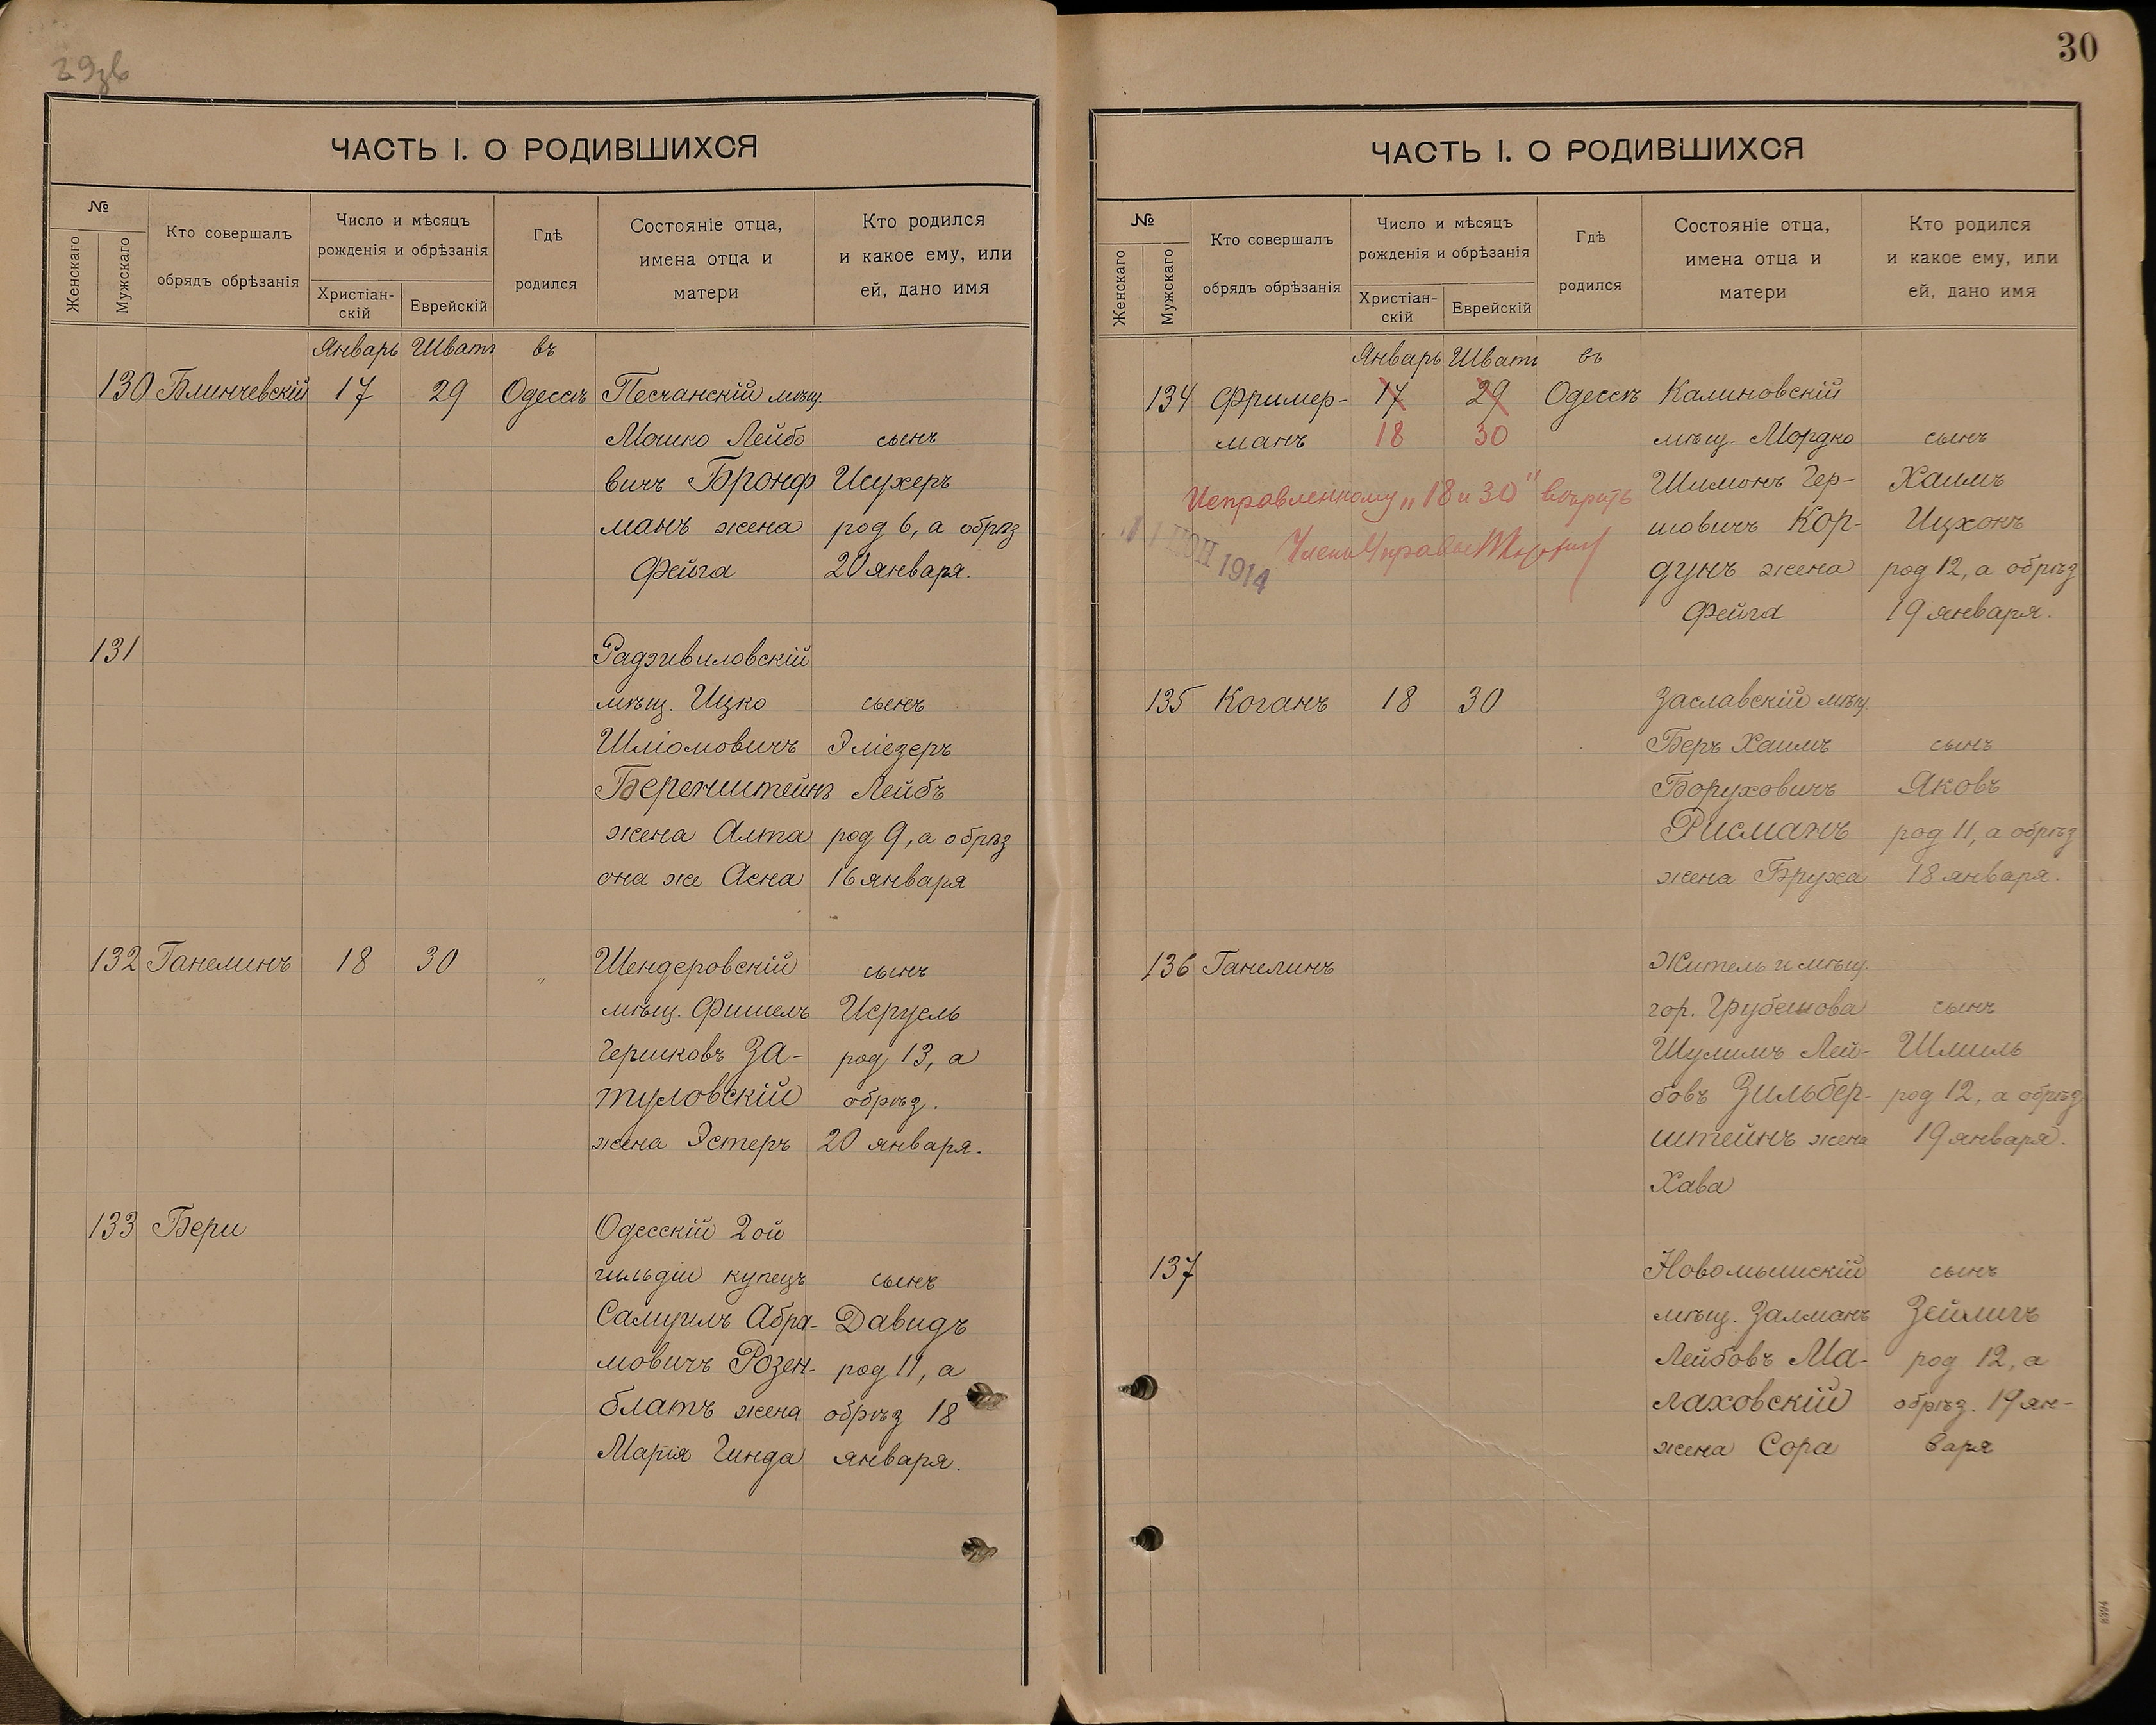 29зв
ЧАСТЬ I. О РОДИВШИХСЯ
№
Женскаго
Мужскаго
Кто совершалъ
обрядъ обрѣзанія
Число и мѣсяцъ
рожденія и обрѣзанія
Христіан-
скій
Еврейскій
Гдѣ
родился
Состояніе отца,
имена отца и
матери
Кто родился
и какое ему, или
ей, дано имя
Январь Шватъ въ
130 Блинчевскій 17 29 Одессѣ Песчанскій мѣщ.
Мошко Лейбо сынъ
вичъ Бронф Исухеръ
манъ жена род 6, а обрѣз
Фейга 20 января.
131 Радзивиловскій
мѣщ. Ицко сынъ
Шліомовичъ Эліезеръ
Беренштейнъ Лейбъ
жена Алта род 9, а обрѣз
она же Асна 16 января
132 Ганелинъ 18 30 „ Шендеровскій сынъ
мѣщ. Фишель Исруель
Гершковъ За- род 13, а
туловскій обрѣз.
жена Эстеръ 20 января.
133 Бери Одесскій 2ой
гильдіи купецъ сынъ
Самуилъ Абра- Давидъ
мовичъ Розен- род 11, а
блатъ жена обрѣз 18
Марія Гинда января.
30
ЧАСТЬ I. О РОДИВШИХСЯ
№
Женскаго
Мужскаго
Кто совершалъ
обрядъ обрѣзанія
Число и мѣсяцъ
рожденія и обрѣзанія
Христіан-
скій
Еврейскій
Гдѣ
родился
Состояніе отца,
имена отца и
матери
Кто родился
и какое ему, или
ей, дано имя
Январь Шватъ въ
134 Фример- 17 29 Одессѣ Калиновскій
манъ 18 30 мѣщ. Мордко сынъ
Исправленному „18 и 30" вѣрить Шимонъ Гер- Хаимъ
шовичъ Кор- Ицхокъ
Членъ Управы
ІЮН 1914
дунъ жена род 12, а обрѣз
Фейга 19 января.
135 Коганъ 18 30 Заславскій мѣщ
Беръ Хаимъ сынъ
Боруховичъ Яковъ
Рисманъ род 11, а обрѣз
жена Бруха 18 января.
136 Ганелинъ Житель и мѣщ.
гор. Грубешова сынъ
Шулимъ Лей- Шмиль
бовъ Зильбер- род 12, а обрѣз
штейнъ жена 19 января.
Хава
137 Новомышскій сынъ
мѣщ. Залманъ Зейлигъ
Лейбовъ Ма- род 12, а
лаховскій обрѣз. 19 ян-
жена Сора варя
8394